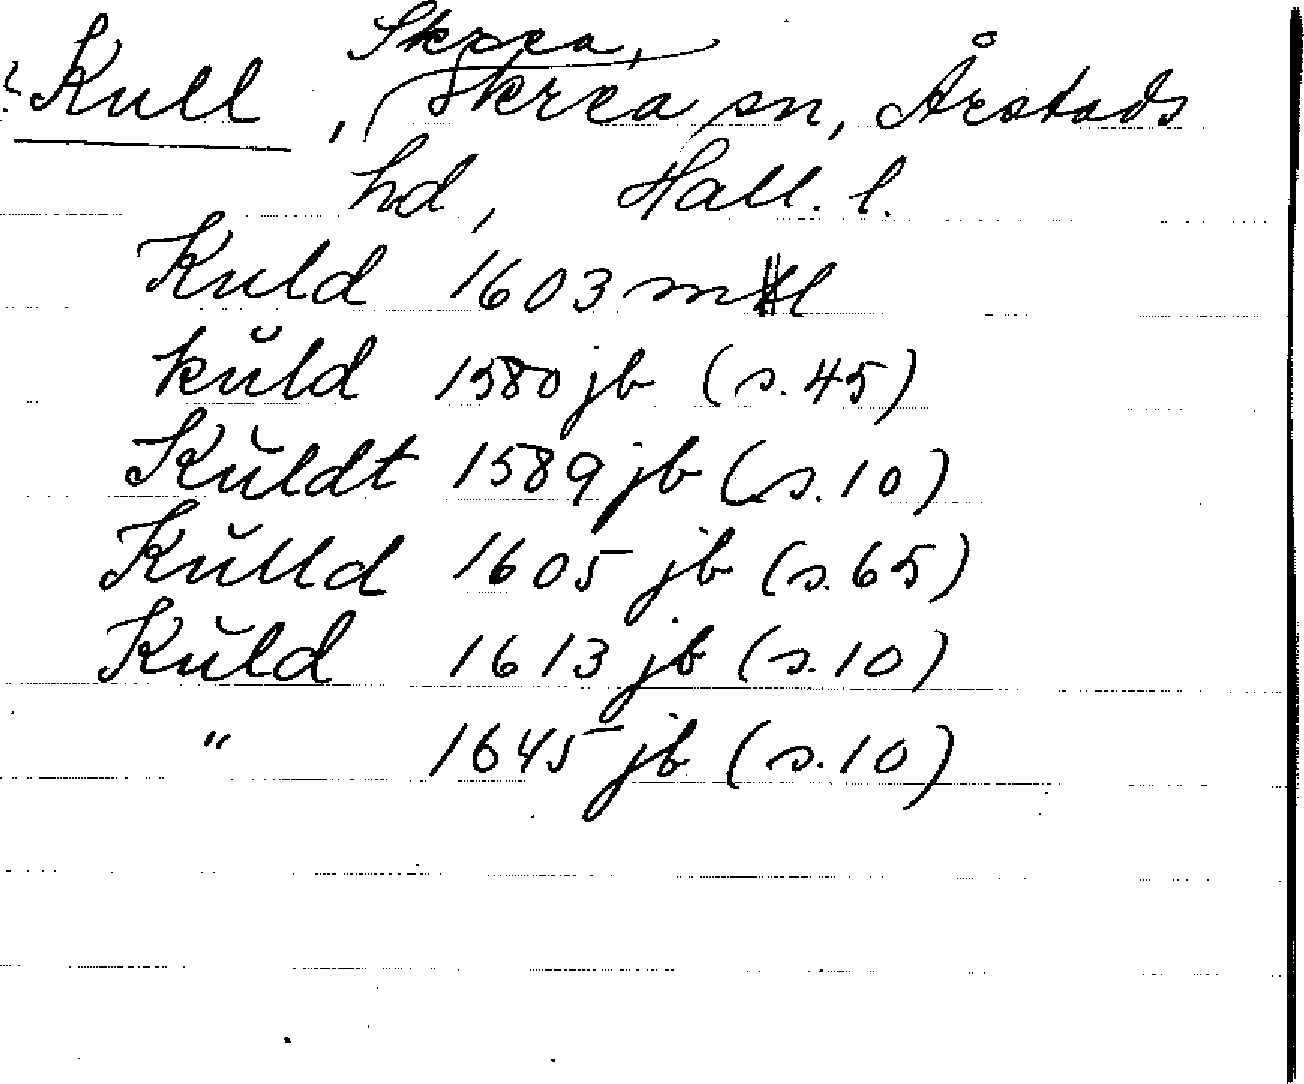 Skrea,
Kull, Skrea sn, Årstads
hd, Hall. l.
Kuld 1603 ml
kŭld 1580 jb (s. 45)
Kŭldt 1589 jb (s. 10)
Kŭlld 1605 jb (s. 65)
Kŭld 1613 jb (s. 10)
" 1645 jb (s. 10)